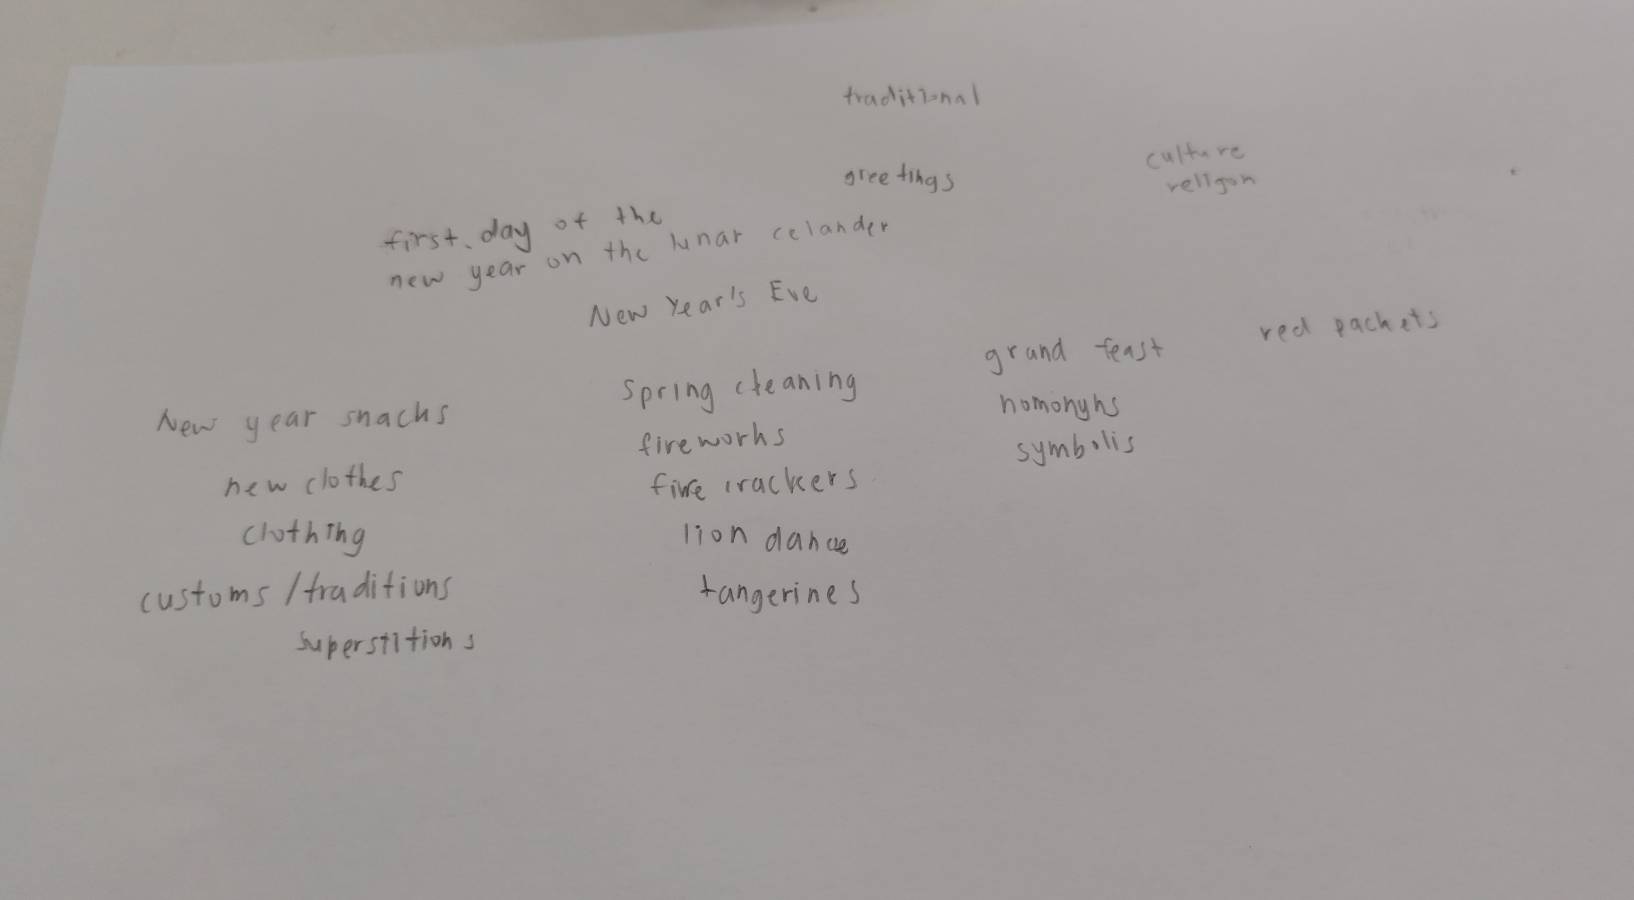 traditional
greetings
culture
religon
first day of the
new year on the lunar celander
New Year's Eve
grand feast
red packets
Spring cleaning
New year snacks
homonyhs
fireworks
symbolis
new clothes
fire crackers
clothing
lion dance
customs/traditions
tangerines
superstitions